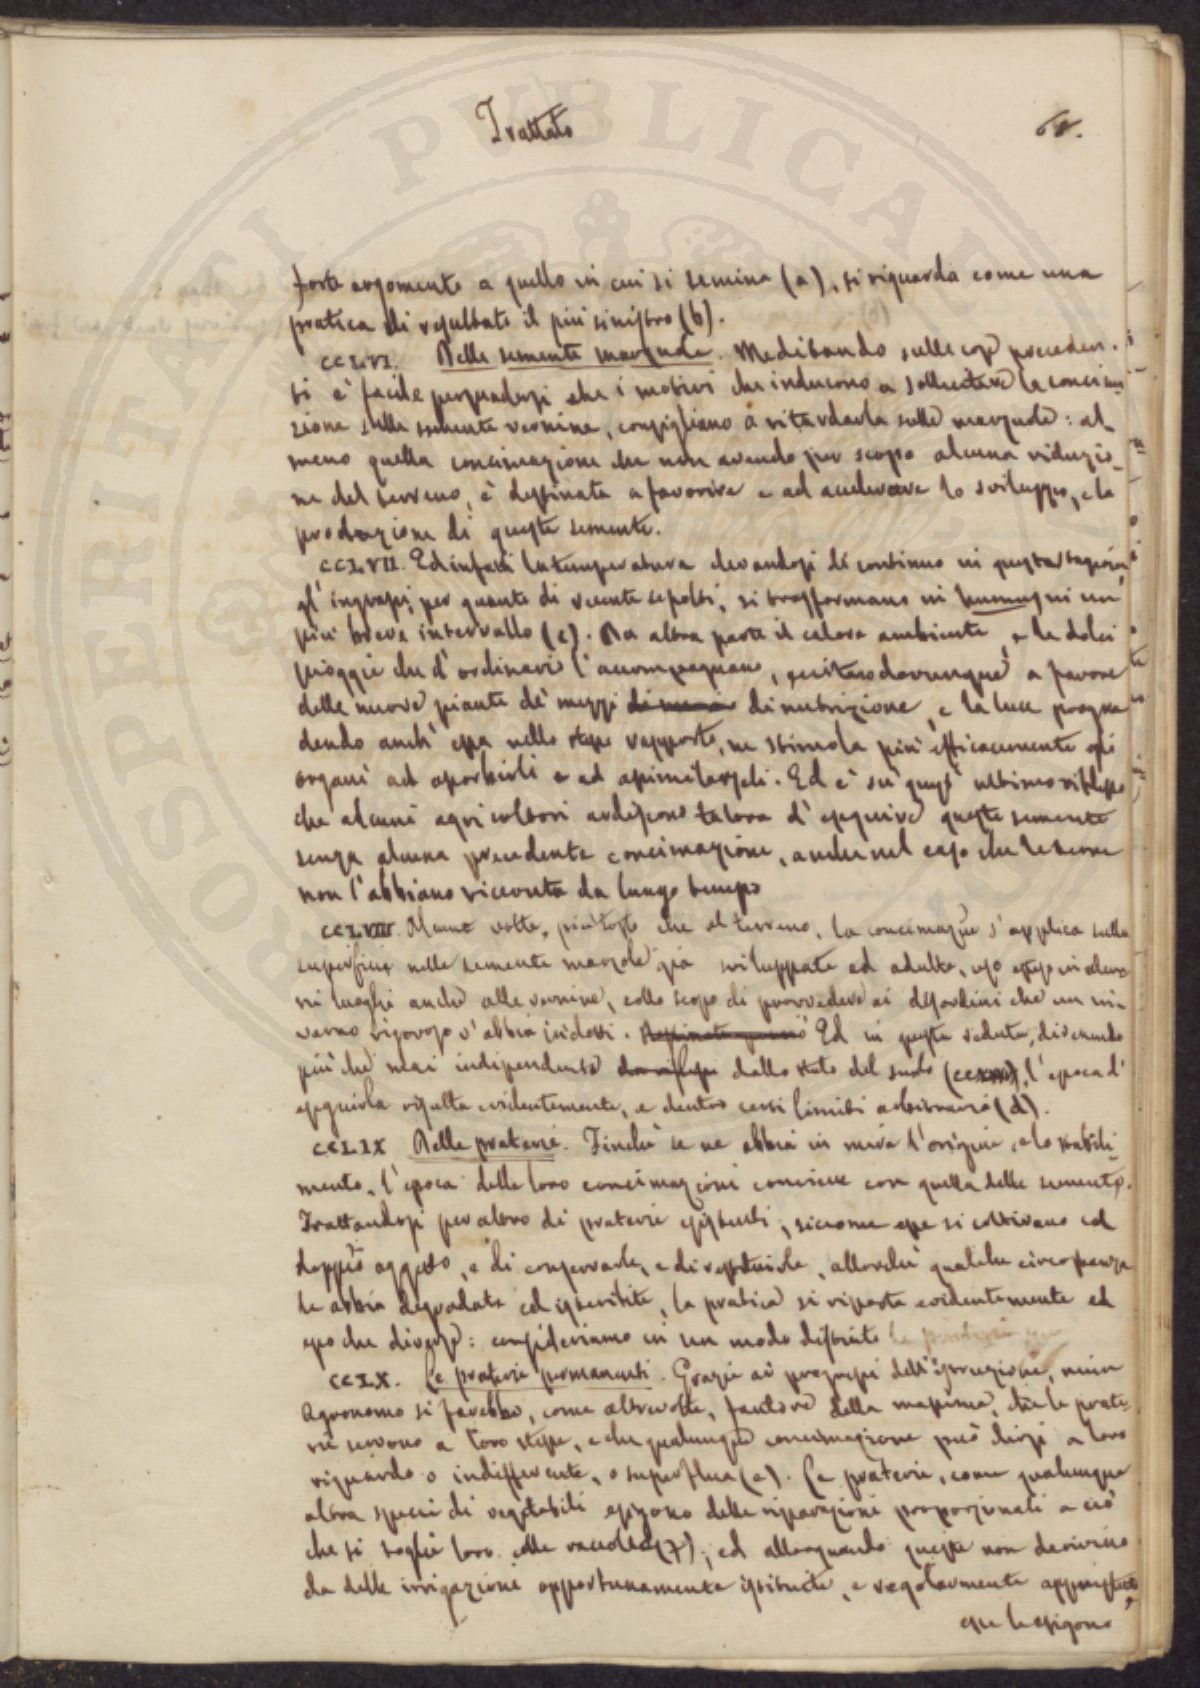 Trattato
68.
PROSPERITATI PUBLICAE
forte argomento a quello in cui si semina (a), si riguarda come una
pratica di resultato il più sinistro (b).
CCLVI. Delle semente marzuole. Meditando sulle cose preceden-
ti è facile persuadersi che i motivi che inducono a sollecitare la concima-
zione sulle semente vernine, consigliano a ritardarla sulle marzuole: al-
meno quella concimazione che non avendo per scopo alcuna riduzio-
ne del terreno, è destinata a favorire e ad accelerare lo sviluppo, e la
produzione di queste semente.
CCLVII. Ed infatti la temperatura elevandosi di continuo in questa stagione
gl'ingrassi, per quanto di recente sepolti, si trasformano in humus in un
più breve intervallo (c). Da altra parte il calore ambiente, e le dolci
pioggie che d'ordinario l'accompagnano, suscitano dovunque a favore
delle nuove piante de' mezzi di nutrizione, e la luce progre
dendo anch'essa nello stesso rapporto, ne stimola più efficacemente gli
organi ad assorbirli e ad assimilarseli. Ed è su quest'ultimo riflesso
che alcuni agricoltori ardiscono talora d'eseguire queste semente
senza alcuna precedente concimazione, anche nel caso che le terre
non l'abbiano ricevuta da lungo tempo
CCLVIII. Alcune volte, piuttosto che al terreno, la concimazione s'applica sulla
superficie nelle semente marzole già sviluppate ed adulte, uso esteso in alcu
ni luoghi anche alle vernine, collo scopo di provvedere ai disordini che un in-
verno rigoroso v'abbia indotti. Ed in questa veduta, divenendo
più che mai indipendente dallo stato del suolo, l'epoca d'
eseguirla risulta evidentemente, e dentro certi limiti arbitraria (d).
CCLIX Delle praterie. Finchè se ne abbia in mira l'origine, e lo stabili-
mento, l'epoca delle loro concimazioni coincide con quella delle semente.
Trattandosi peraltro di praterie esistenti, siccome esse si coltivano col
doppio oggetto, e di conservarle, e di restituirle, allorchè qualche circostanza
le abbia degradate ed isterilite, la pratica si riporta evidentemente ad
epoche diverse: consideriamo in un modo distinto
CCLX. Le praterie permanenti. Grazie ai progressi dell'istruzione, niun
Agronomo si farebbe, come altrevolte, fautore della massima, che le prate-
rie servono a loro stesse, e che qualunque concimazione può dirsi a loro
riguardo o indifferente, o superflua (e). Le praterie, come qualunque
altra specie di vegetabili esigono delle riparazioni proporzionali a ciò
che si toglie loro colle raccolte (f); ed allorquando queste non derivino
da delle irrigazioni opportunamente istituite, e regolarmente
esse le esigono